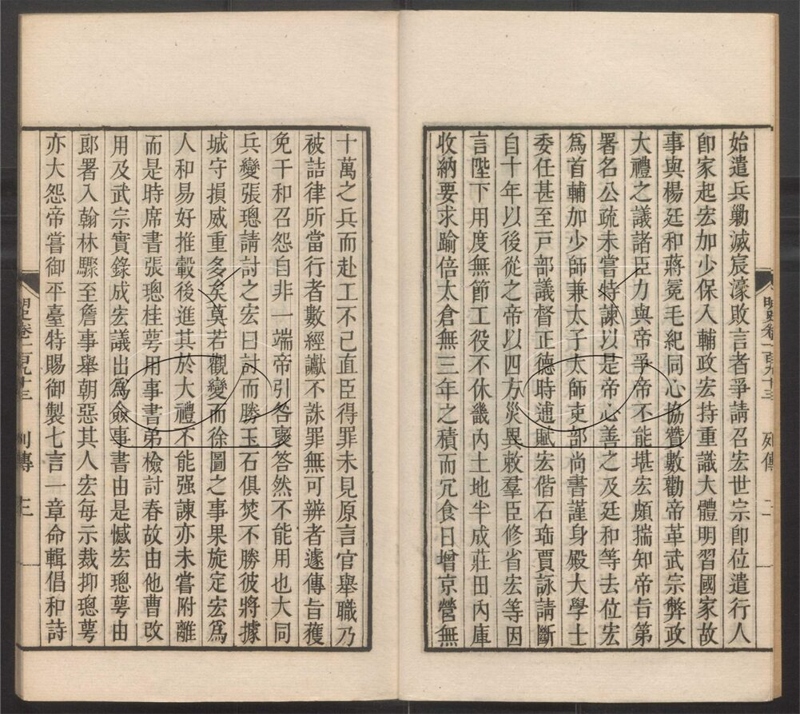 始遣兵勦滅宸濠敗言者爭請召宏世宗卽位遣行人
卽家起宏加少保入輔政宏持重識大體明習國家故
事與楊廷和蔣冕毛紀同心協贊數勸帝革武宗弊政
大禮之議諸臣力與帝爭帝不能堪宏頗揣知帝旨第
署名公疏未嘗特諫以是帝心善之及廷和等去位宏
爲首輔加少師兼太子太師吏部尚書謹身殿大學士
委任甚至戸部議督正德時逋賦宏偕石珤賈詠請斷
自十年以後從之帝以四方災異敕羣臣修省宏等因
言陛下用度無節工役不休畿內土地半成莊田內庫
收納要求踰倍太倉無三年之積而冗食日增京營無
明史卷一百九十三 列傳 二
十萬之兵而赴工不已直臣得罪未見原言官舉職乃
被詰律所當行者數經讞不誅罪無可辨者遽傳旨獲
免干和召怨自非一端帝引咎褒答然不能用也大同
兵變張璁請討之宏曰討而勝玉石俱焚不勝彼將據
城守損威重多矣莫若觀變而徐圖之事果旋定宏爲
人和易好推轂後進其於大禮不能强諫亦未嘗附離
而是時席書張璁桂萼用事書弟檢討春故由他曹改
用及武宗實錄成宏議出爲僉事書由是憾宏璁萼由
郞署入翰林驟至詹事舉朝惡其人宏每示裁抑璁萼
亦大怨帝嘗御平臺特賜御製七言一章命輯倡和詩
明史卷一百九十三 列傳 三